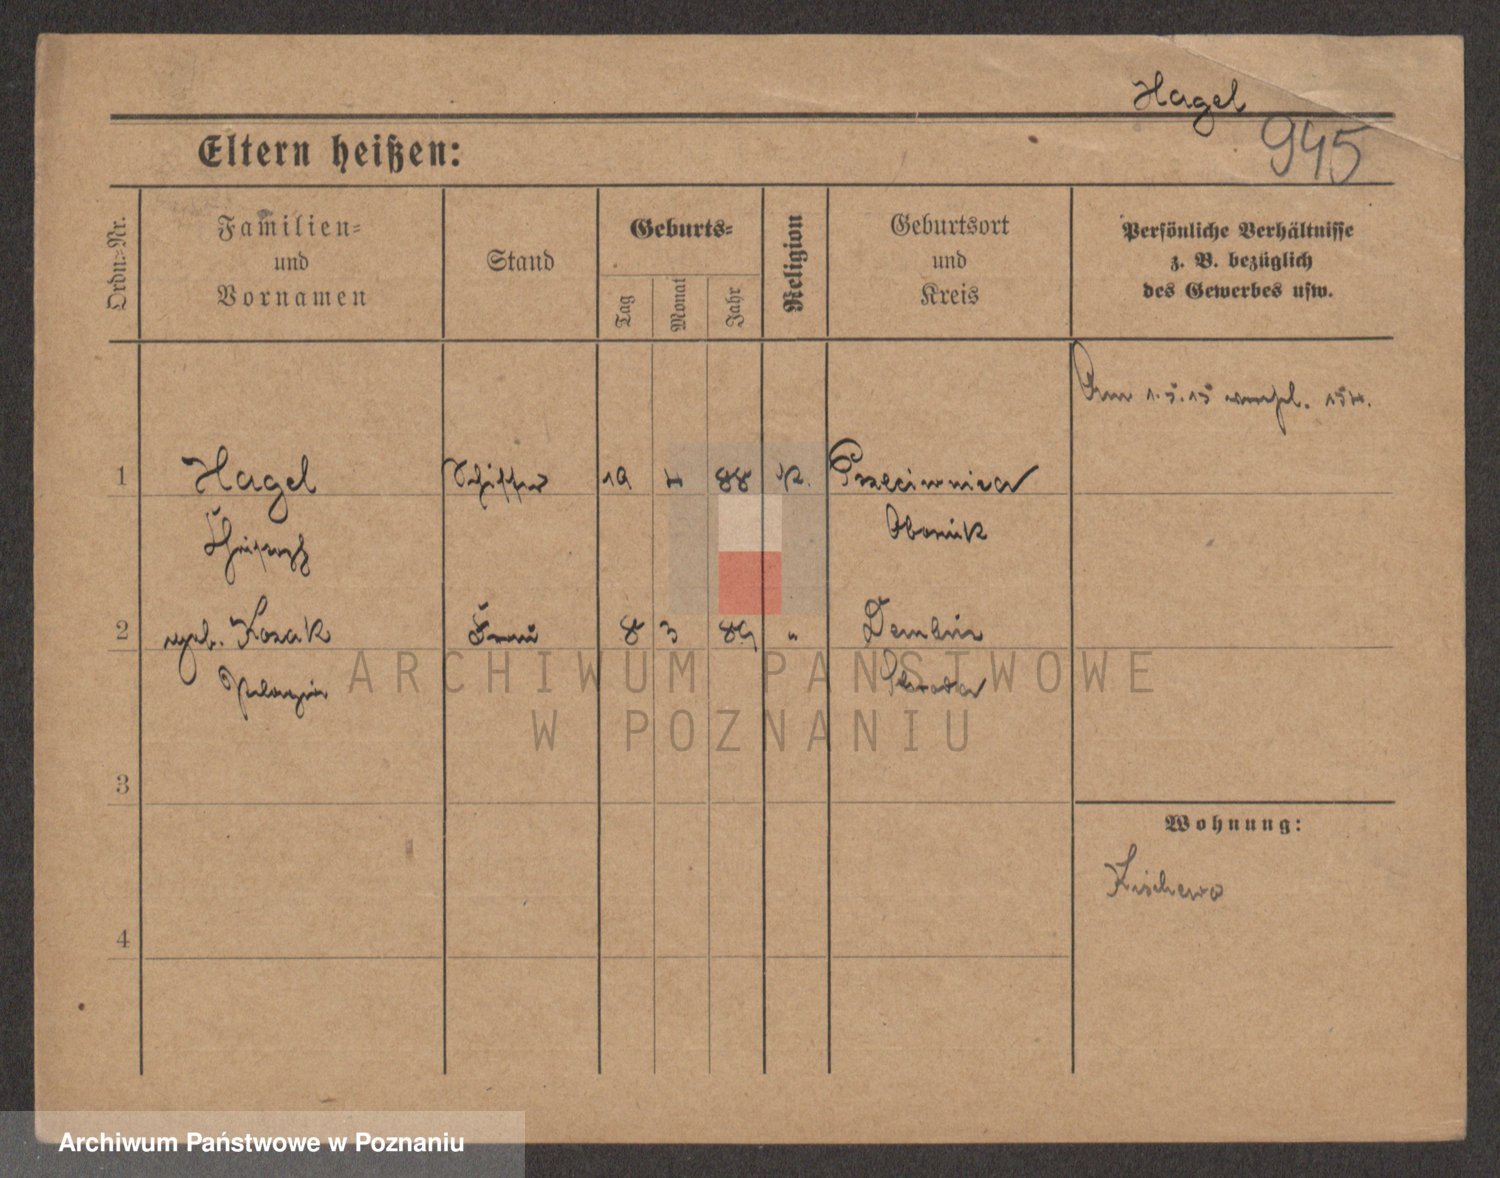 Hagel
945
Eltern heißen:
Ordn.-Nr.
Familien=
und
Vornamen
Stand
Geburts=
Tag
Monat
Jahr
Religion
Geburtsort
und
Kreis
Persönliche Verhältnisse
z. B. bezüglich
des Gewerbes usw.
1.5.15
1 Hagel Schiffer 88 K.
Obornik
2 geb. Kozak Frau 8 3 89 "
Pelagia Schroda
ARCHIWUM PAŃSTWOWE
W POZNANIU
3
Wohnung:
Kischewo
4
Archiwum Państwowe w Poznaniu